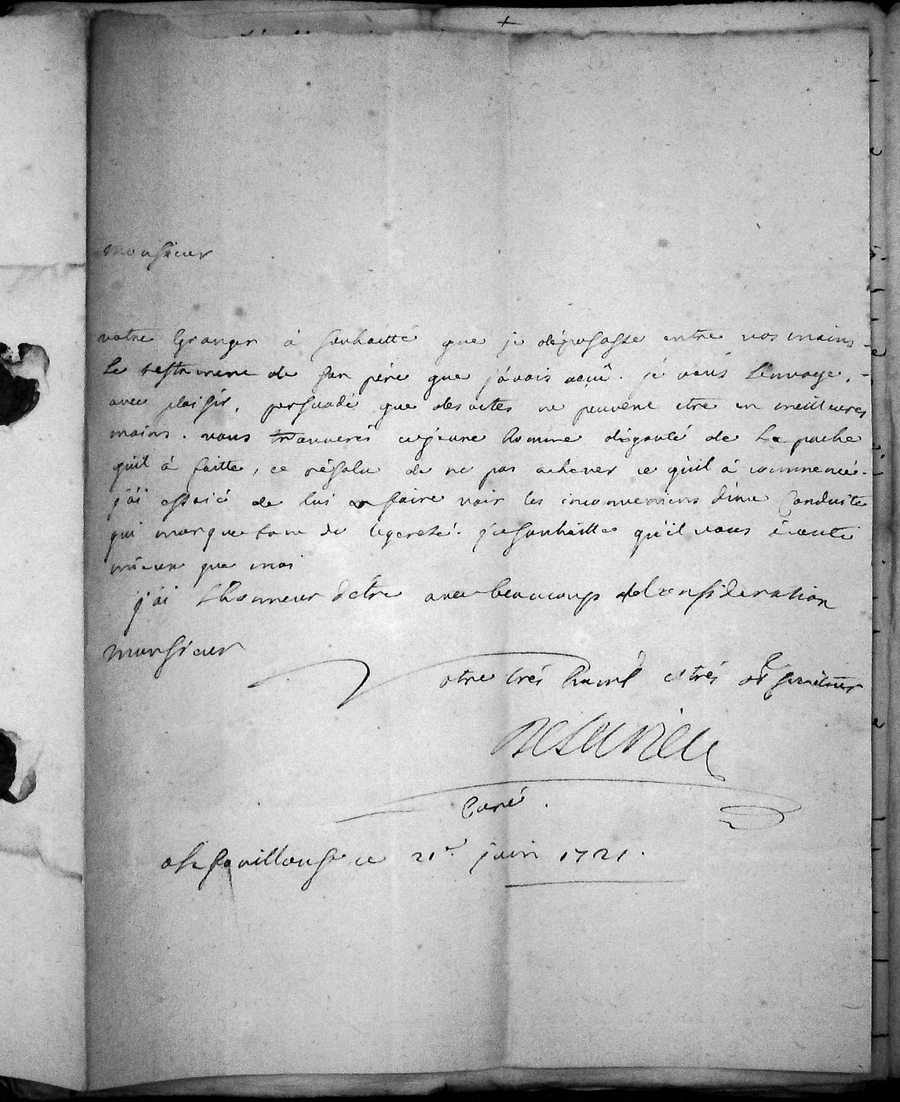 monsieur
votre Granger à souhaitté que je déposasse entre vos mains
le testament de son père que j'avais reçû. je vous l'envoye,
avec plaisir, persuadé que des actes ne peuvent etre en meilleures
mains. vous trouverés ce jeune homme dégouté de la
qu'il à faitte, ce résolu de ne pas achever ce qu'il à commencé.
j'ai essaié de lui faire voir les inconveniens d'une Conduite
qui marque tant de legereté. je souhaitte qu'il vous écoute
mieux que moi
j'ai l'honneur d'être avec beaucoup de Consideration
monsieur
Votre trés humble et trés obt serviteur
Curé.
ce 21e juin 1721.